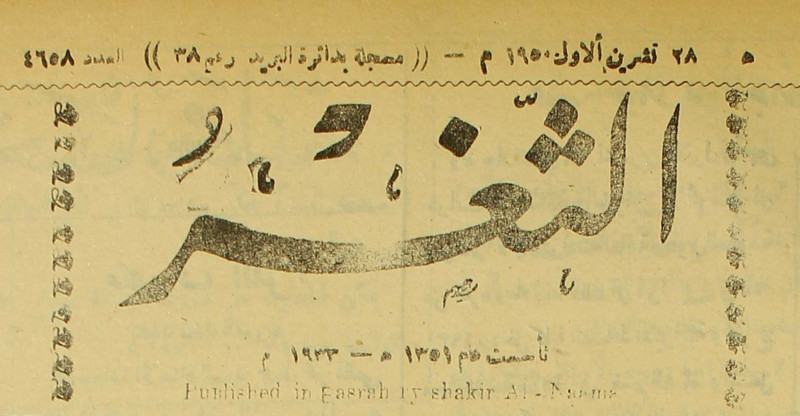 ه ٢٨ تشرين ألاول ١٩٥٠ م — (( مسجلة بدائرة البريد رقم ٣٨ )) العدد ٤٦٥٨
الثَّغْرُ
تأسست عام ١٣٥١ ه — ١٩٣٣ م
Published in Basrah by shakir Al-Naama